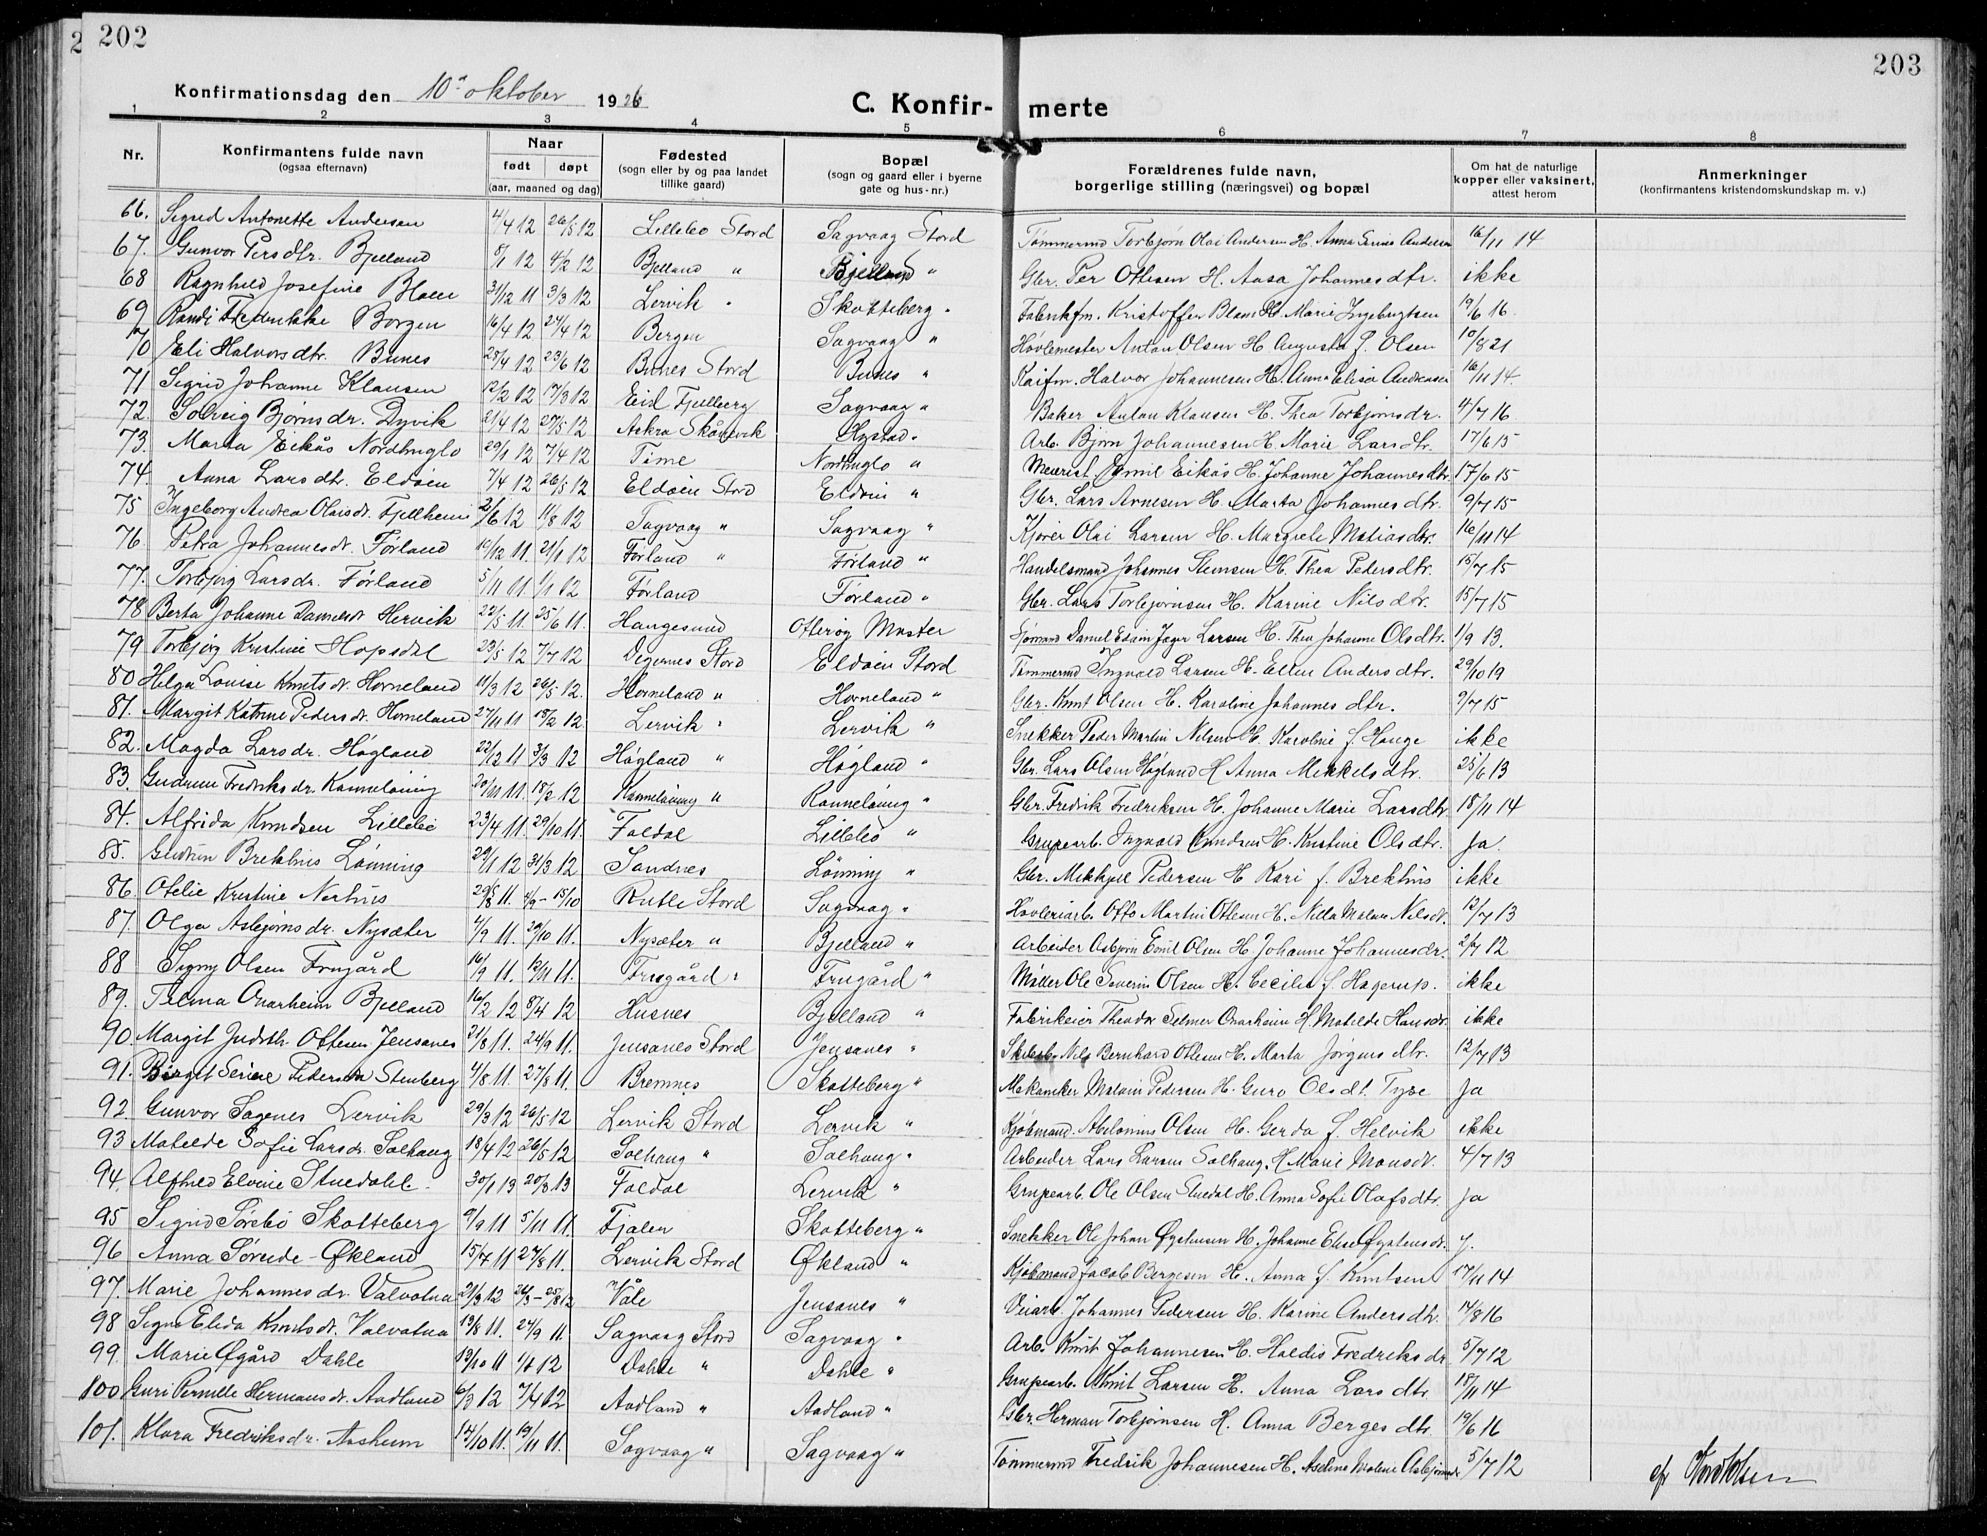 202
203
Konfirmationsdag den 10de oktober 1926
C. Konfir- merte
1 2 3 4 5 6 7 8
Nr. Konfirmantens fulde navn (ogsaa efternavn) Naar født døpt (aar, maaned og dag) Fødested (sogn eller by og paa landet tillike gaard) Bopæl (sogn og gaard eller i byerne gate og hus-nr.) Forældrenes fulde navn, borgerlige stilling (næringsvei) og bopæl Om hat de naturlige kopper eller vaksinert, attest herom Anmerkninger (konfirmantens kristendomskundskap m. v.)
66. Sigrid Antonette Andersen 4/4 12 26/5 12 Lillebø Stord Sagvaag Stord Tømmermd Torbjørn Olai Andersen H. Anna Serine Andersen 16/11 14
67. Gunvor Persdtr. Bjelland 8/1 12 4/2 12 Bjelland " Bjelland " Gbr. Per Ottesen H. Aasa Johannesdtr. ikke
68 Ragnhild Josefine Blom 31/12 11 3/3 12 Lervik " Skotteberg " Fabrikfm. Kristoffer Blom H. Marie Ingebrigtsen 19/6 16.
69 Randi Fredrikke Borgen 16/4 12 24/4 12 Bergen Sagvaag " Høvlemester Anton Olsen H. Augusta f. Olsen 10/8 21
70 Eli Halvorsdtr. Bunes 28/4 12 23/6 12 Bunes Stord Bunes " Kaifm. Halvor Johannesen H. Anna Elisa Andreasen 16/11 14.
71 Sigrid Johanne Klausen 12/2 12 17/3 12 Eid Fjelberg Sagvaag " Baker Anton Klausen H. Thea Torbjørnsdr. 4/7 16
72. Solveig Bjørnsdr. Dyvik 21/4 12 27/5 12 Aakra Skånevik Hystad " Arb. Bjørn Johannesen H. Marie Larsdtr. 17/6 15
73. Marta Eikås Nordhuglo 29/1 12 7/4 12 Time Nordhuglo " Meierist Emil Eikås H. Johanne Johannesdtr. 17/6 15
74. Anna Larsdtr. Eldøen 7/4 12 26/5 12 Eldøen Stord Eldøen " Gbr. Lars Arnesen H. Marta Johannesdtr. 9/7 15
75 Ingeborg Andrea Olaisdt. Fjellheim 2/6 12 11/8 12 Sagvaag " Sagvaag " Kjører Olai Larsen H. Margrete Matiasdtr. 16/11 14
76. Petra Johannesdt. Førland 19/12 11. 21/1 12 Førland " Førland " Handelsmand Johannes Stensen H. Thea Pedersdtr. 15/7 15
77. Torbjørg Larsdr. Førland 5/11 11. 1/1 12 Førland Førland " Gbr. Lars Torbjørnsen H. Karine Nilsdtr. 15/7 15
78 Berta Johanne Danielsdt Hervik 22/5 11 25/6 11. Haugesund Otterøy Moster Sjømand Daniel Edvin Jæger Larsen H. Thea Johanne Olsdtr. 1/9 13.
79 Torbjørg Kristine Hopsdal 23/5 12 7/7 12 Degernes Stord Eldøen Stord Tømmermd Ingvald Larsen H. Ellen Andersdtr. 29/10 19
80 Helga Louise Knutsdt. Horneland 11/3 12 26/5 12. Horneland " Horneland " Gbr. Knut Olsen H. Karoline Johannesdtr. 9/7 15
81. Margit Katrine Pedersdt. Horneland 27/11 11 18/2 12. Lervik " Lervik " Snekker Peder Martin Nilsen H. Karoline f. Hauge ikke
82. Magda Larsdr. Høgland 22/12 11 3/3 12 Høgland " Høgland " Gbr. Lars Olsen Høgland H Anna Mikkelsdtr. 25/6 13
83. Gudrun Fredriksdr. Ranneløning 20/11 11. 18/2 12 Ranneløning " Ranneløning " Gbr. Fredrik Fredriksen H. Johanne Marie Larsdtr. 18/11 14
84. Alfrida Knudsen Lillebø 23/4 11. 29/10 11. Foldal Lillebø " Grupearb. Ingvald Knudsen H. Kristine Olsdtr. ja.
85. Gudrun Brekhus Lønning 29/1 12 31/3 12 Sandnes Lønning " Gbr. Mikkjel Pedersen H Kari f. Brekhus ikke
86. Otelie Kristine Nerhus 29/8 11. 4/9 - 15/10 Rutle Stord Sagvaag " Høvleriarb. Otto Martin Ottesen H. Nilla Malene Nilsdt. 12/7 13
87. Olga Asbjørnsdr. Nysæter 4/9 11. 29/10 11. Nysæter " Bjelland " Arbeider Asbjørn Emil Olsen H. Johanne Johannesdr. 2/7 12
88 Signy Olsen Frugård 16/9 11. 12/11 11. Frugård " Frugård " Møller Ole Severin Olsen H. Cecilie f. Hagerup. ikke
89. Talma Onarheim Bjelland 16/2 12 8/4 12 Husnes Bjelland " Fabrikeier Theodor Selmer Onarheim H. Matilde Hansdr. ikke
90. Margit Judith. Ottesen Jensanes 21/8 11. 24/9 11. Jensanes Stord Jensanes " Nils Bernhard Ottesen H. Marta Jørgensdtr. 12/7 13
91. Birgit Serine Pedersen Stenberg 4/8 11. 27/8 11. Bremnes Skotteberg " Mekaniker Malvin Pedersen H. Guro Olsdt. Tyse Ja
92. Gunvor Sagenes Lervik 29/3 12 26/5 12 Lervik Stord Lervik " Kjøbmand Abelonius Olsen H. Gerda f. Helvik ikke
93 Matilde Sofie Larsdr. Solhaug 18/4 12 26/5 12 Solhaug " Solhaug " Arbeider Lars Larsen Solhaug. H Marie Monsdt. 4/7 13
94. Alfhild Elvine Stuedahl. 30/1 13 20/3 13 Foldal Lervik " Grupearb. Ole Olsen Stuedal H. Anna Sofie Olafsdtr. ja
95 Sigrid Sørebø Skotteberg 9/9 11. 5/11 11. Fjaler Skotteberg " Snekker Ole Johan Øystensen H. Johanne Elise Øystensdt. J.
96 Anna Søreide - Økland 15/7 11 27/8 11. Lervik Stord Økland " Kjøbmand Jacob Bergesen H. Anna f. Knutsen 17/11 14
97. Marie Johannesdr. Valvatna 21/3 12 24/3 - 25/8 12 Våle Jensanes " Veiarb. Johannes Pedersen H. Karine Andersdtr. 14/8 16
98 Signe Elida Knutsdt. Valvatna 13/8 11. 24/9 11. Sagvaag Stord Sagvaag " Arb. Knut Johannesen H. Haldis Fredriksdr 5/7 12
99. Marie Øgård Dahle 13/10 11 1/1 12 Dahle " Dahle " Grupearb. Knut Larsen H. Anna Larsdtr 18/11 14
100 Guri Pernille Hermansdt. Aadland 6/3 12 7/4 12 Aadland " Aadland " Gbr. Herman Torbjørnsen H. Anna Bergesdtr. 19/6 16
101. Klara Fredriksdr. Aasheim 14/10 11. 19/11 11. Sagvaag " Sagvaag " Tømmermd Fredrik Johannesen H. Aselina Malene Asbjørnsdr. 5/7 12